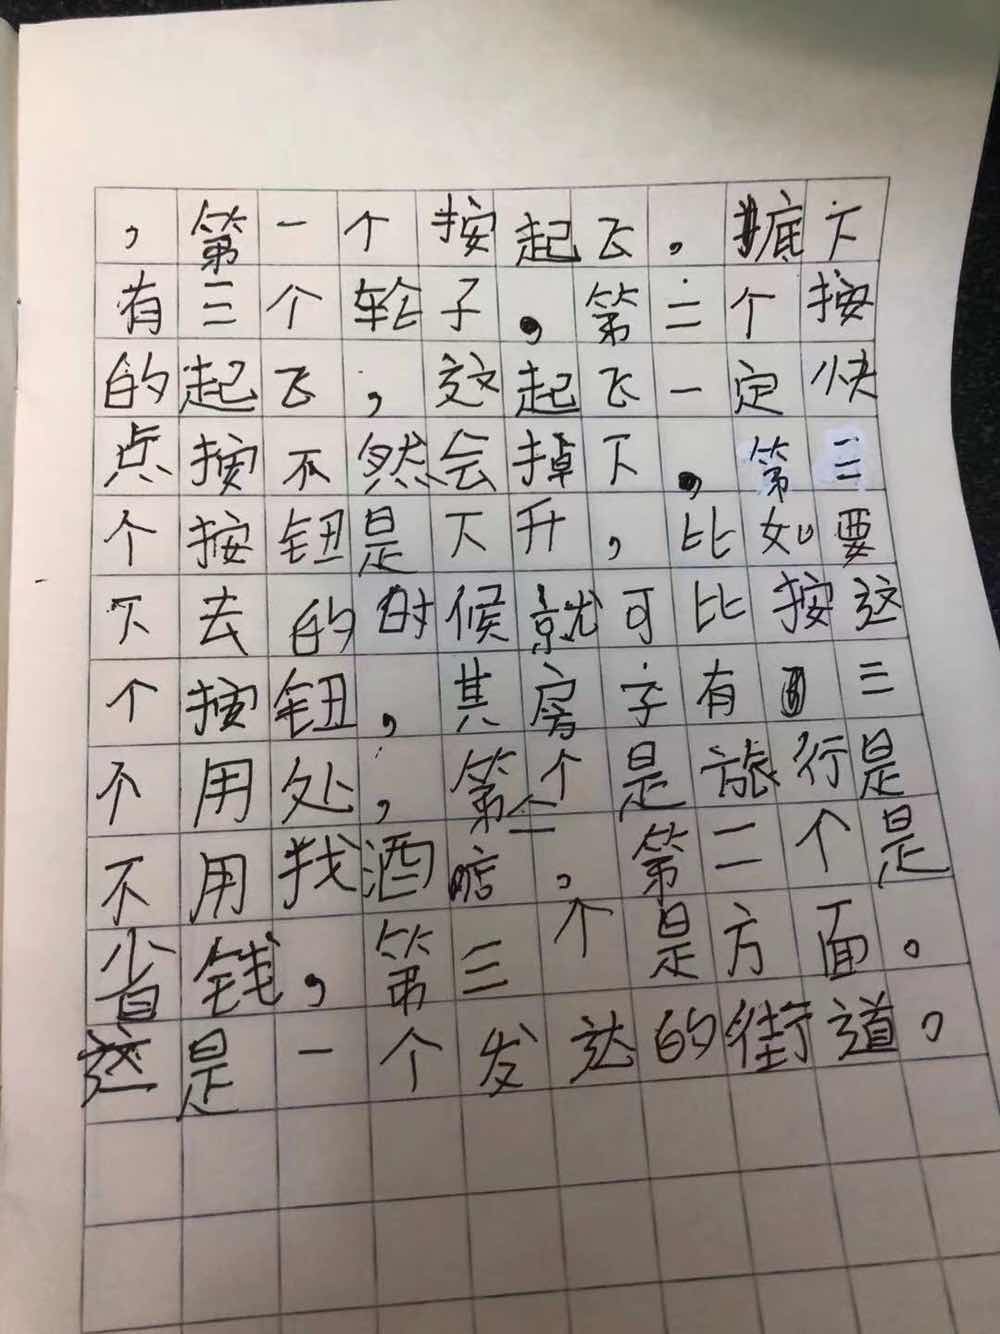 ，第一个按起飞。底下
有三个轮子，第二个按
的起飞，这起飞一定快
点按不然会掉下，第三
个按钮是下升，比如要
下去的时候就可比按这
个按钮，其房子有三
个用处，第一个是旅行是
不用找酒店。第二个是
省钱，第三个是方面。
这是一个发达的街道。